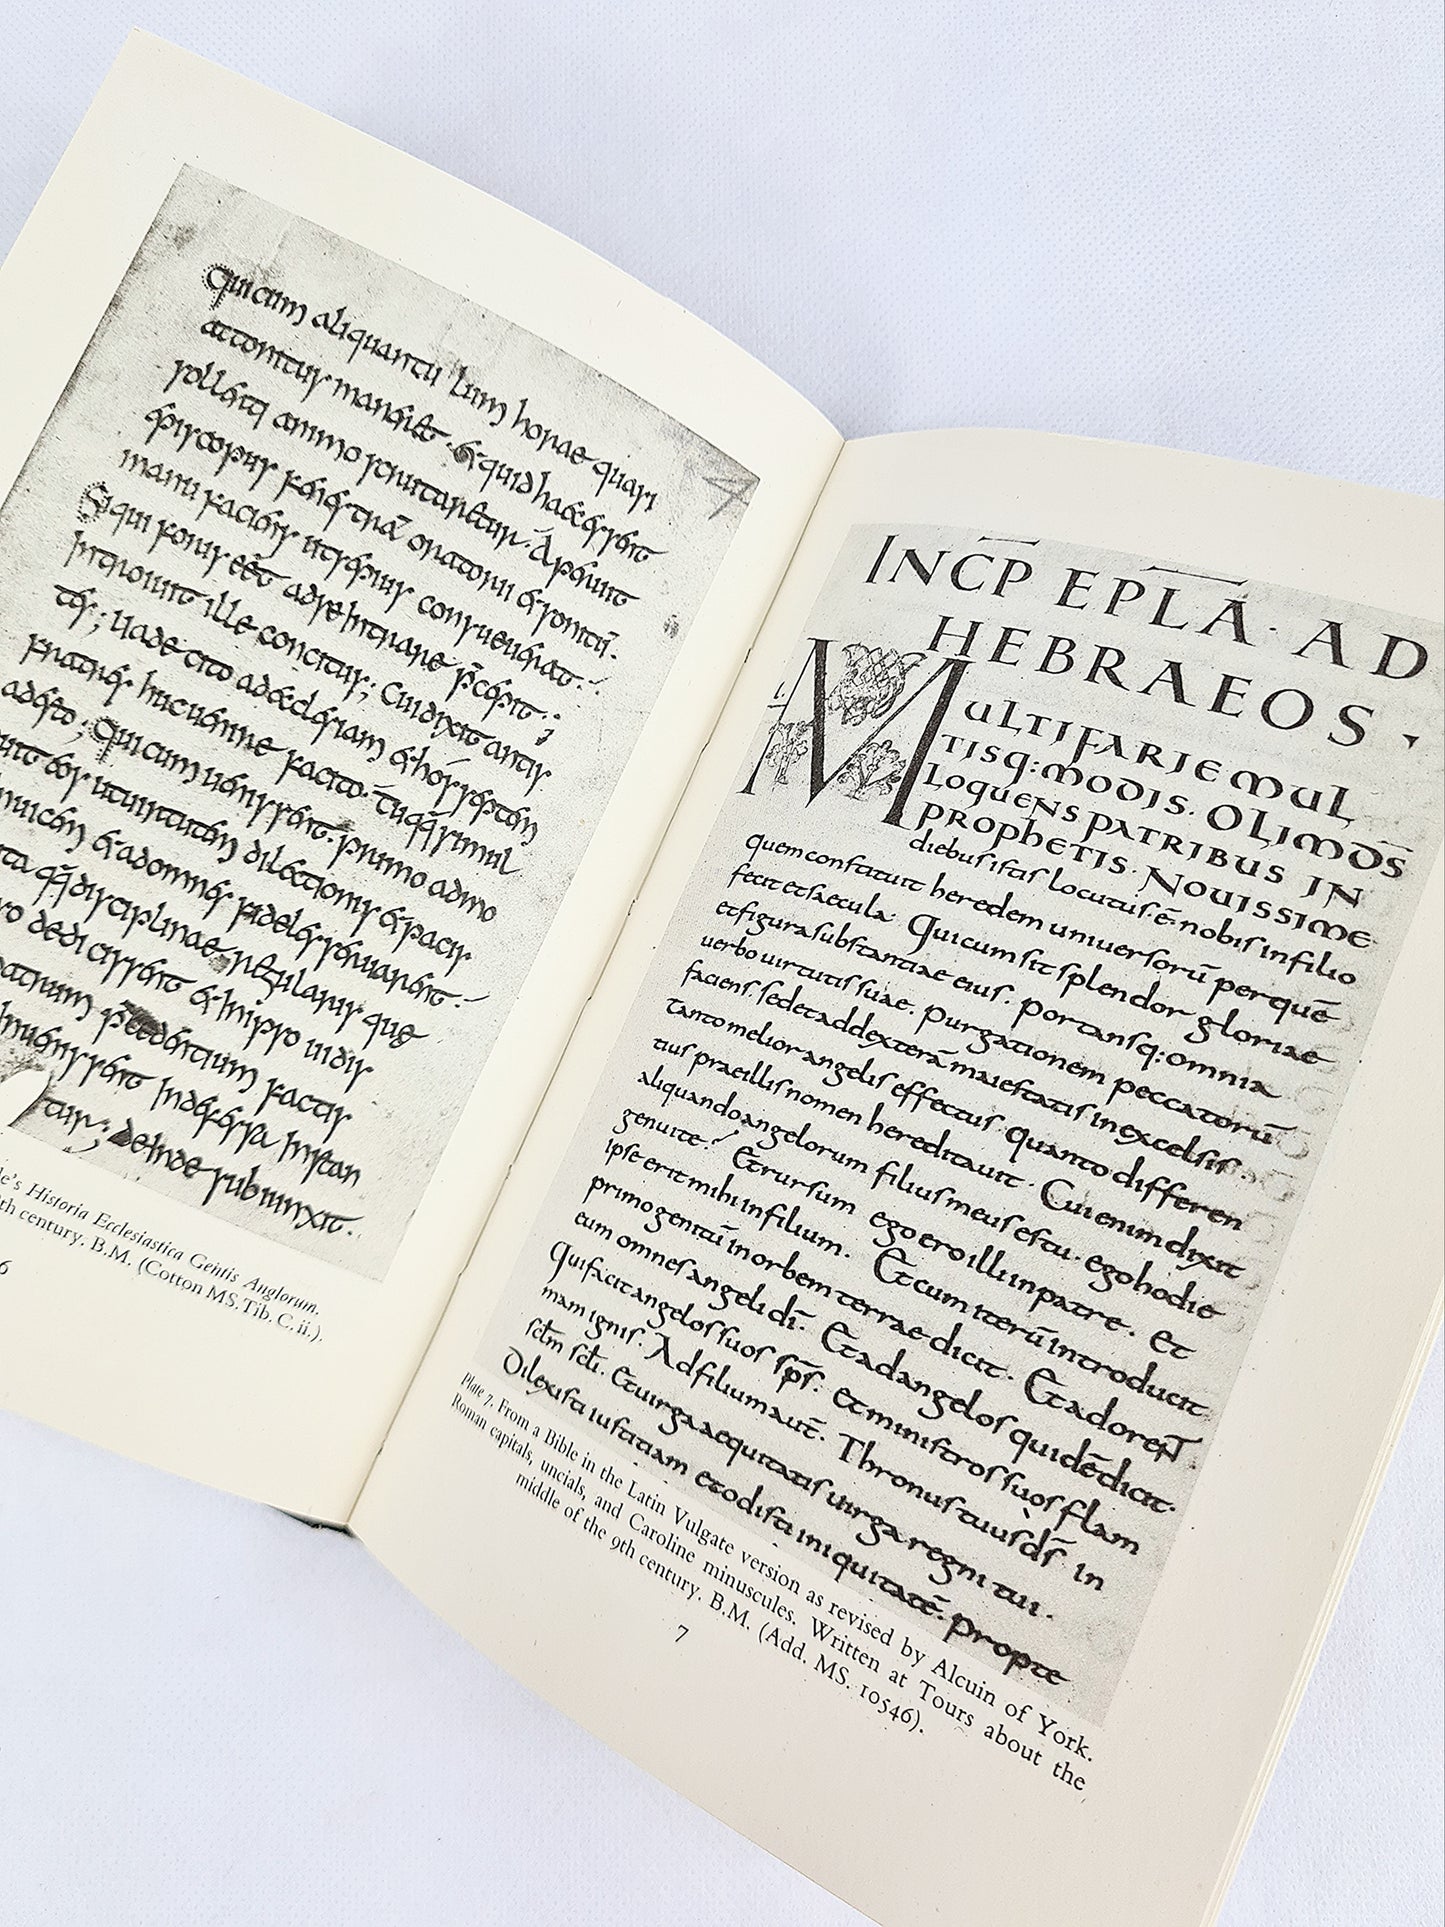 quicum aliquantu lum horae quasi
attonitus maneret · & quid haec essent
sollerti animo scrutaretur. Aperuit
episcopus fenestra oratorii & sonitu
manu faciens ut sepius consueuerat.
Siqui foris eet ad se intrare p̄cepit.
Introiuit ille concitus; Cui dixit antis
tes; Uade cito ad aecclesiam & hos septem
fratres huc uenire facito. tu q̄q̄ simul
adesto; Quicum uenissent. primo admo
uit eos uirtutem dilectionis & pacis
inuicem & ad omnes fideles seruarent.
q̄q̄ disciplinae regularis que
dedicissent & in pro uidis
patrum p̄cedentium factis
inuenissent Indefessa Instan
tur; deInde subiunxit.
Historia Ecclesiastica Gentis Anglorum.
th century. B.M. (Cotton MS. Tib. C. ii.).
6
INCP EPLA · AD
HEBRAEOS ·
MULTIFARIE MUL
TISQ: MODIS. OLIM DS
LOQUENS PATRIBUS IN
PROPHETIS. NOUISSIME
diebus istis locutus ē nobis in filio
quem constituit heredem uniuersorū per quē
fecit et saecula. Qui cum sit splendor gloriae
et figura substantiae eius. portansq: omnia
uerbo uirtutis suae. purgationem peccatorū
faciens. sedet ad dexterā maiestatis in excelsis.
tanto melior angelis effectus quanto differen
tius prae illis nomen hereditauit. Cui enim dixit
aliquando angelorum filius meus es tu. ego hodie
genui te? Et rursum ego ero illi in patre. Et
ipse erit mihi in filium. Et cum iterū introducit
primogenitū in orbem terrae dicit. Et adorent
eum omnes angeli dī. Et ad angelos quidē dicit.
Qui facit angelos suos sps̄. et ministros suos flam
mam ignis. Ad filium autē. Thronus tuus ds̄ in
sc̄lm sc̄li. Et uirga aequitatis uirga regni tui.
Dilexisti iustitiam et odisti iniquitatē. propte
Plate 7. From a Bible in the Latin Vulgate version as revised by Alcuin of York.
Roman capitals, uncials, and Caroline minuscules. Written at Tours about the
middle of the 9th century. B.M. (Add. MS. 10546).
7